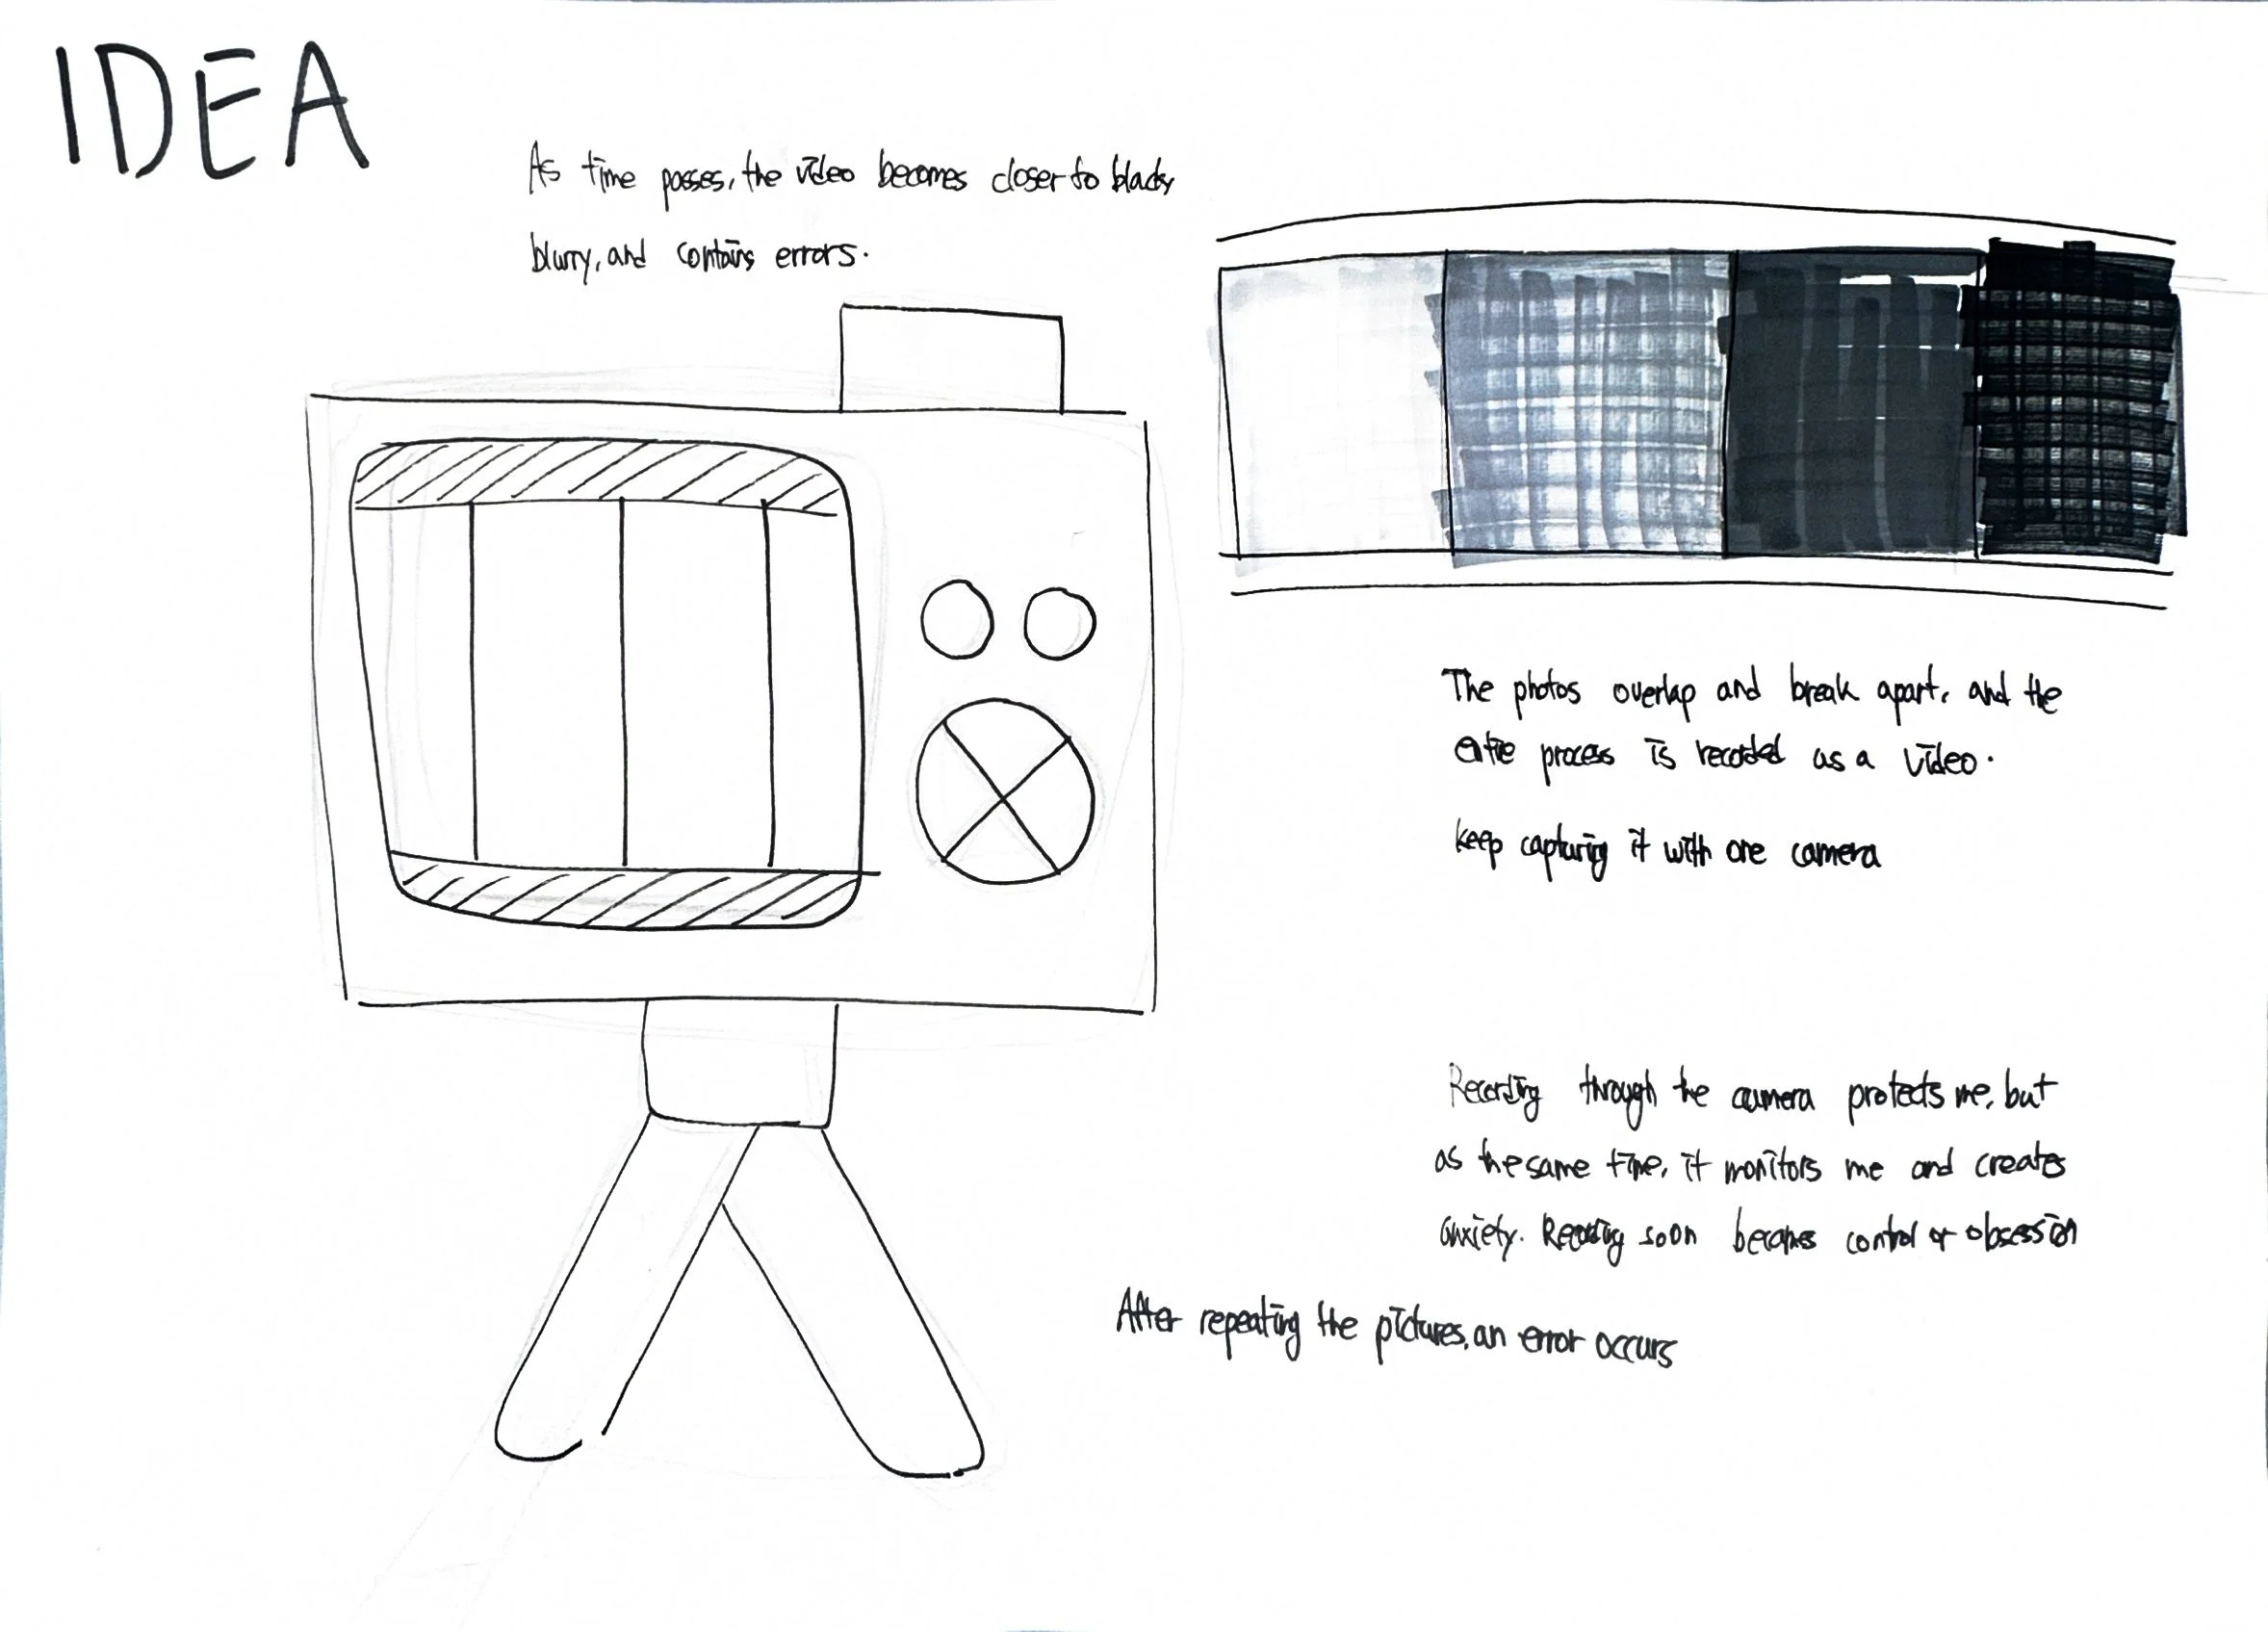 IDEA
As time passes, the video becomes closer to black,
blurry, and contains errors.
The photos overlap and break apart, and the
entire process is recorded as a video.
keep capturing it with one camera
Recording through the camera protects me, but
as the same time, it monitors me and creates
anxiety. Recording soon becomes control or obsession
After repeating the pictures, an error occurs